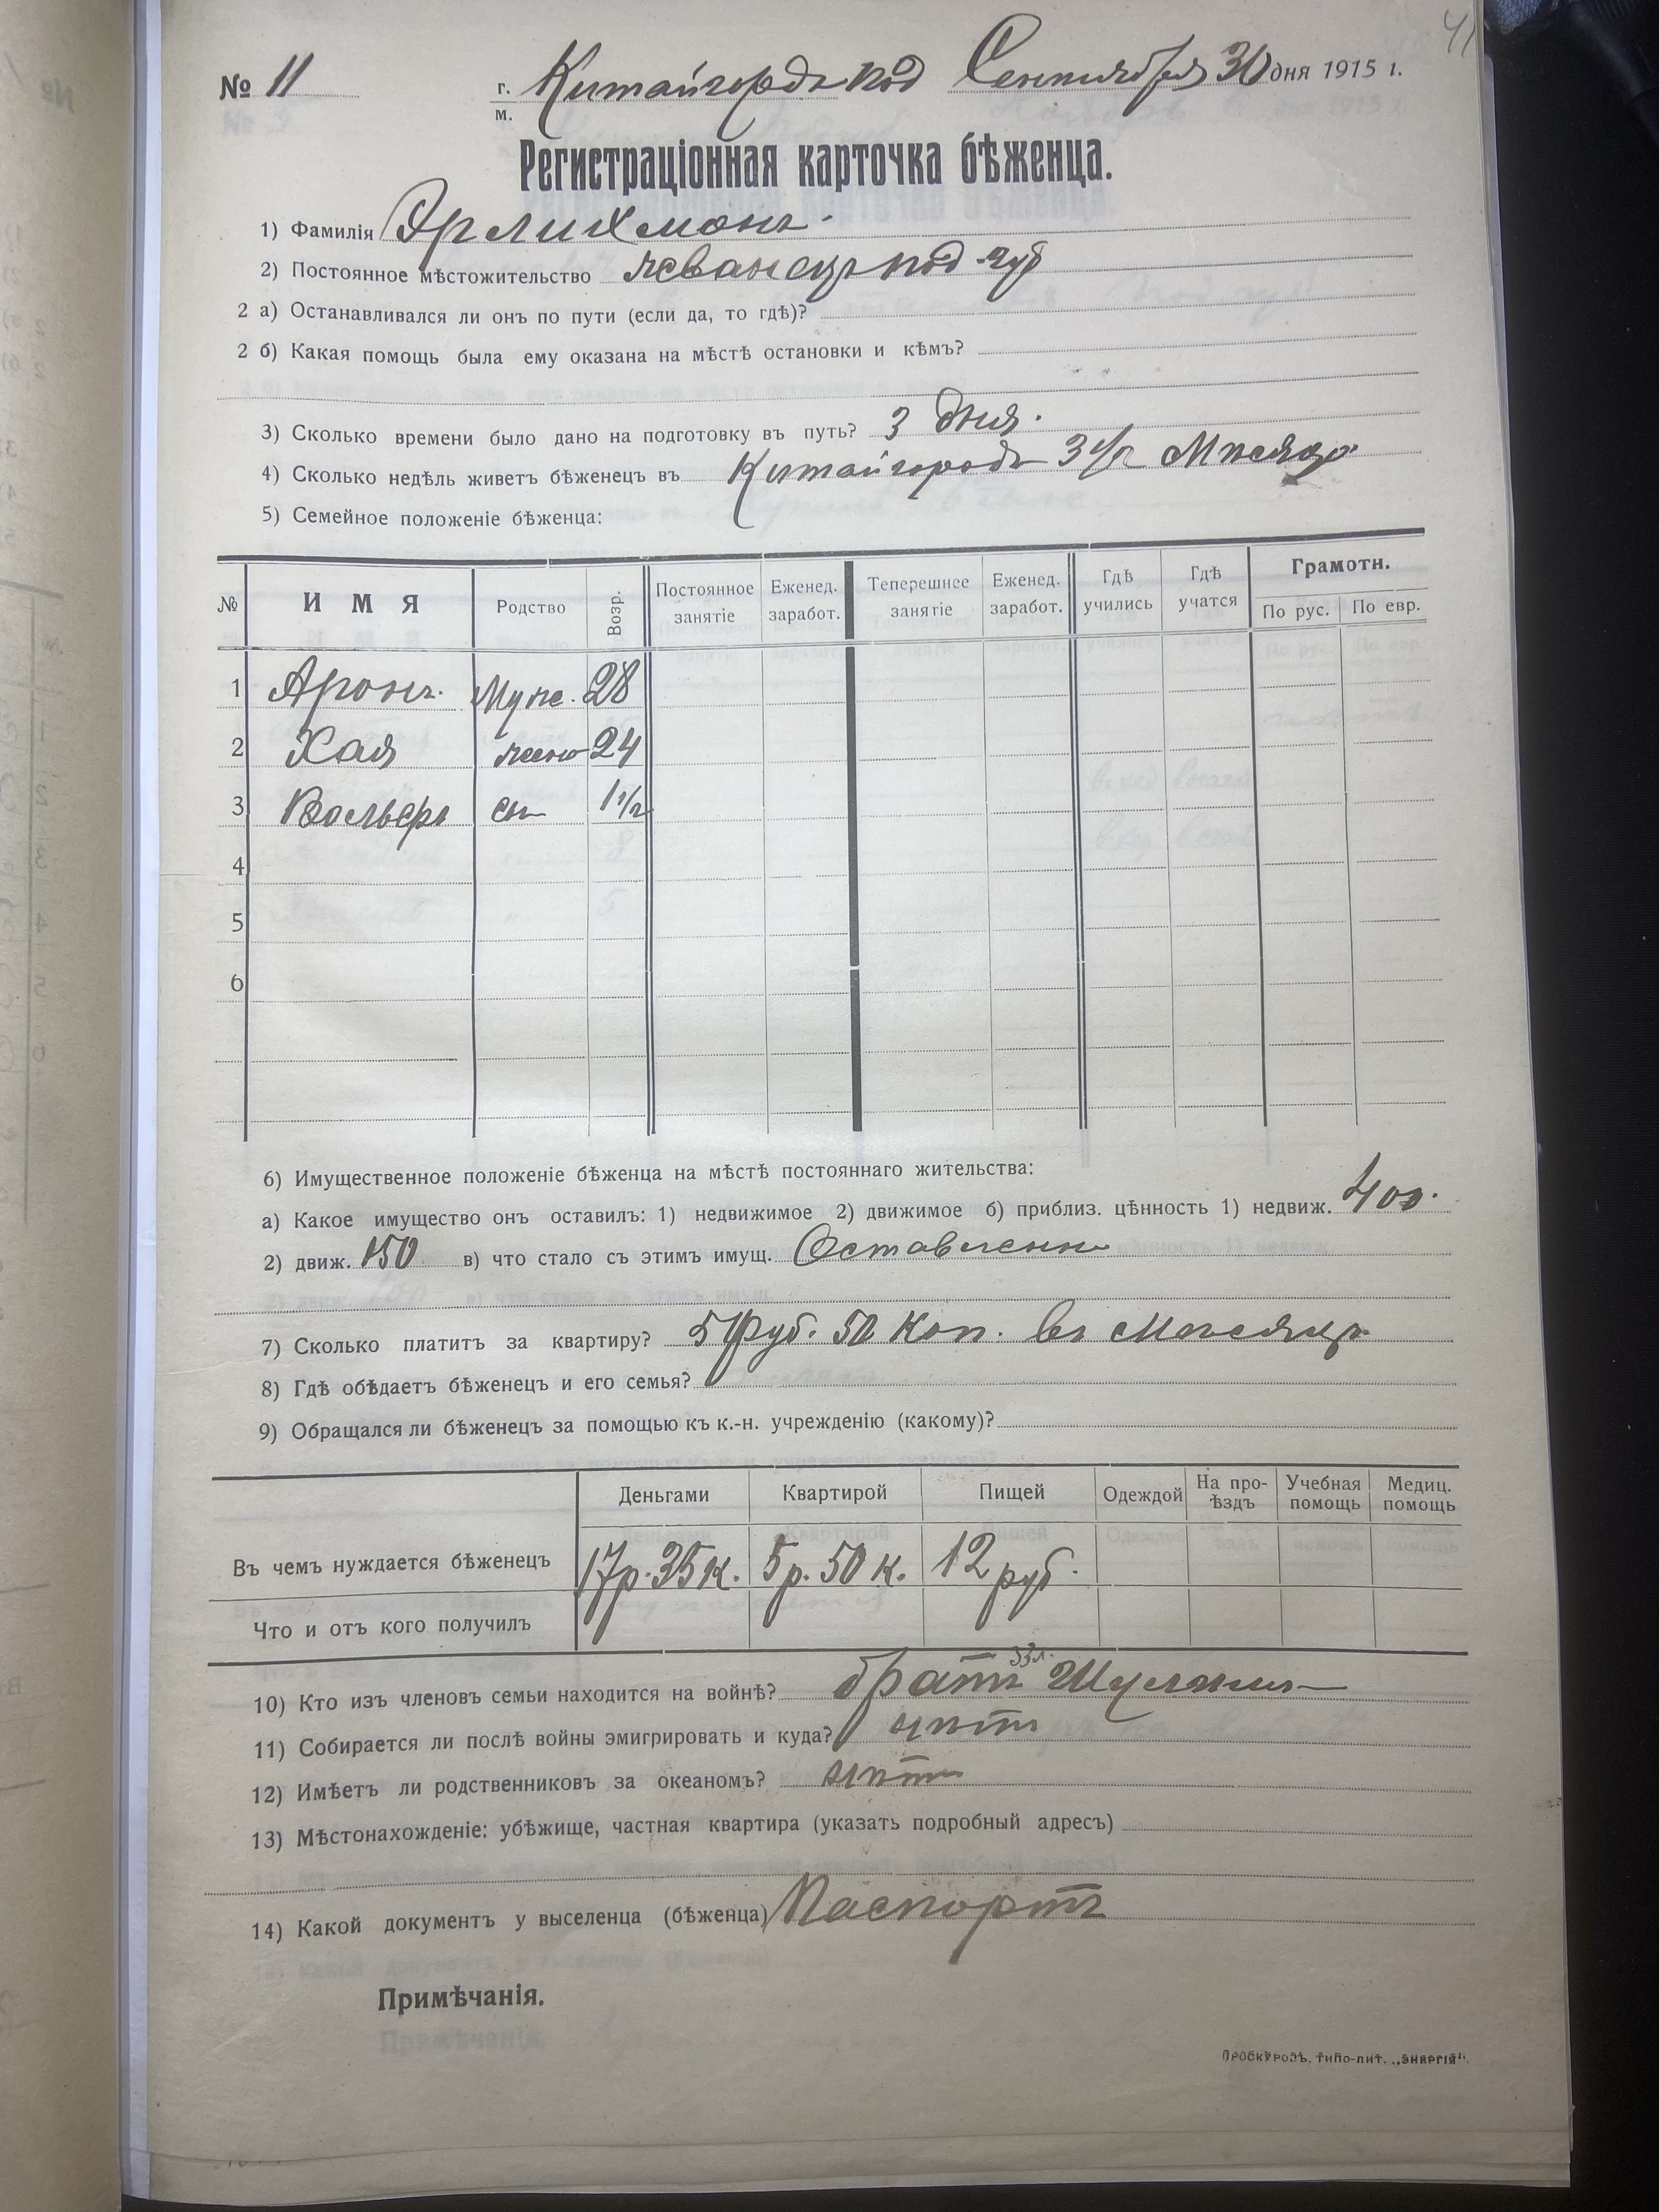 41
№ 11 г. м. Китайгородъ под Сентября 30 дня 1915 г.
Регистраціонная карточка бѣженца.
1) Фамилія Эрлихмонъ.
2) Постоянное мѣстожительство Жванецъ под. губ
2 а) Останавливался ли онъ по пути (если да, то гдѣ)?
2 б) Какая помощь была ему оказана на мѣстѣ остановки и кѣмъ?
3) Сколько времени было дано на подготовку въ путь? 3 дня.
4) Сколько недѣль живетъ бѣженецъ въ Китайгородъ 3 1/2 Мѣсяца
5) Семейное положеніе бѣженца:
№ ИМЯ Родство Возр. Постоянное занятіе Еженед. заработ. Теперешнее занятіе Еженед. заработ. Гдѣ учились Гдѣ учатся Грамотн. По рус. По евр.
1 Аронъ. Муже. 28
2 Хая жена 24
3 Вольверъ сын 1 1/2
4
5
6
6) Имущественное положеніе бѣженца на мѣстѣ постояннаго жительства:
а) Какое имущество онъ оставилъ: 1) недвижимое 2) движимое б) приблиз. цѣнность 1) недвиж. 400.
2) движ. 150 в) что стало съ этимъ имущ. Оставленно
7) Сколько платитъ за квартиру? 5 Руб. 50 Коп. въ Мѣсяцъ
8) Гдѣ обѣдаетъ бѣженецъ и его семья?
9) Обращался ли бѣженецъ за помощью къ к.-н. учрежденію (какому)?
Деньгами Квартирой Пищей Одеждой На про-ѣздъ Учебная помощь Медиц. помощь
Въ чемъ нуждается бѣженецъ 17р.35к. 5р.50к. 12 руб.
Что и отъ кого получилъ
10) Кто изъ членовъ семьи находится на войнѣ? братъ 33л.
11) Собирается ли послѣ войны эмигрировать и куда? нѣтъ
12) Имѣетъ ли родственниковъ за океаномъ? нѣтъ
13) Мѣстонахожденіе: убѣжище, частная квартира (указать подробный адресъ)
14) Какой документъ у выселенца (бѣженца) Паспортъ
Примѣчанія.
Проскуровъ, типо-лит. „Энергія“.